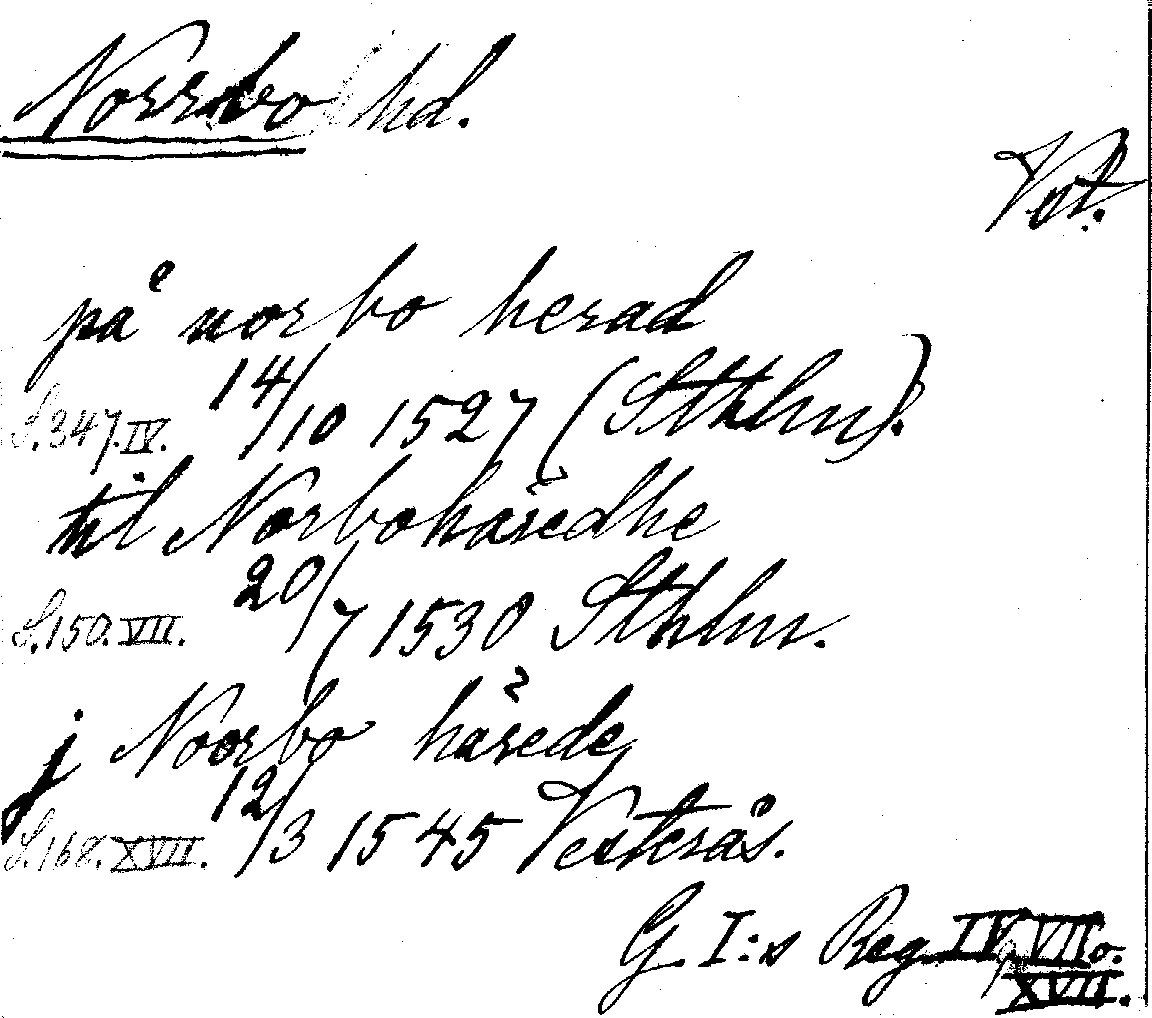 Norrbo hd.
Vst.
på norbo herad
S. 347. IV. 14/10 1527 (Sthlm).
til Norbohäredhe
S. 150. VII. 20/7 1530 Sthlm.
j Noorbo härede
S. 168. XVII. 12/3 1545 Vesterås.
G. I:s Reg. IV, VII o.
XVII.